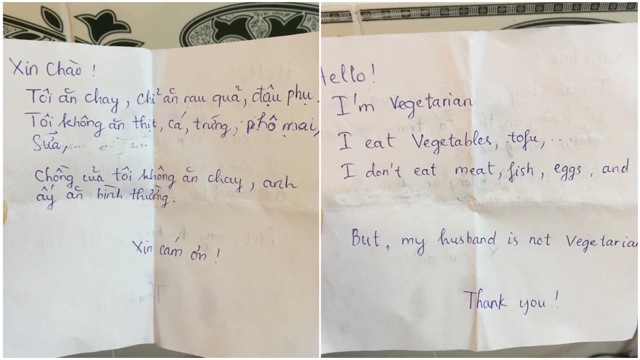 Xin Chào !
Tôi ăn chay, chỉ ăn rau quả, đậu phụ.
Tôi không ăn thịt, cá, trứng, phô mai,
Sửa, ...
Chồng của tôi không ăn chay, anh
ấy ăn bình thường.
Xin cám ơn !
Hello!
I'm Vegetarian
I eat Vegetables, tofu, ...
I don't eat meat, fish, eggs, and
But, my husband is not Vegetaria
Thank you !